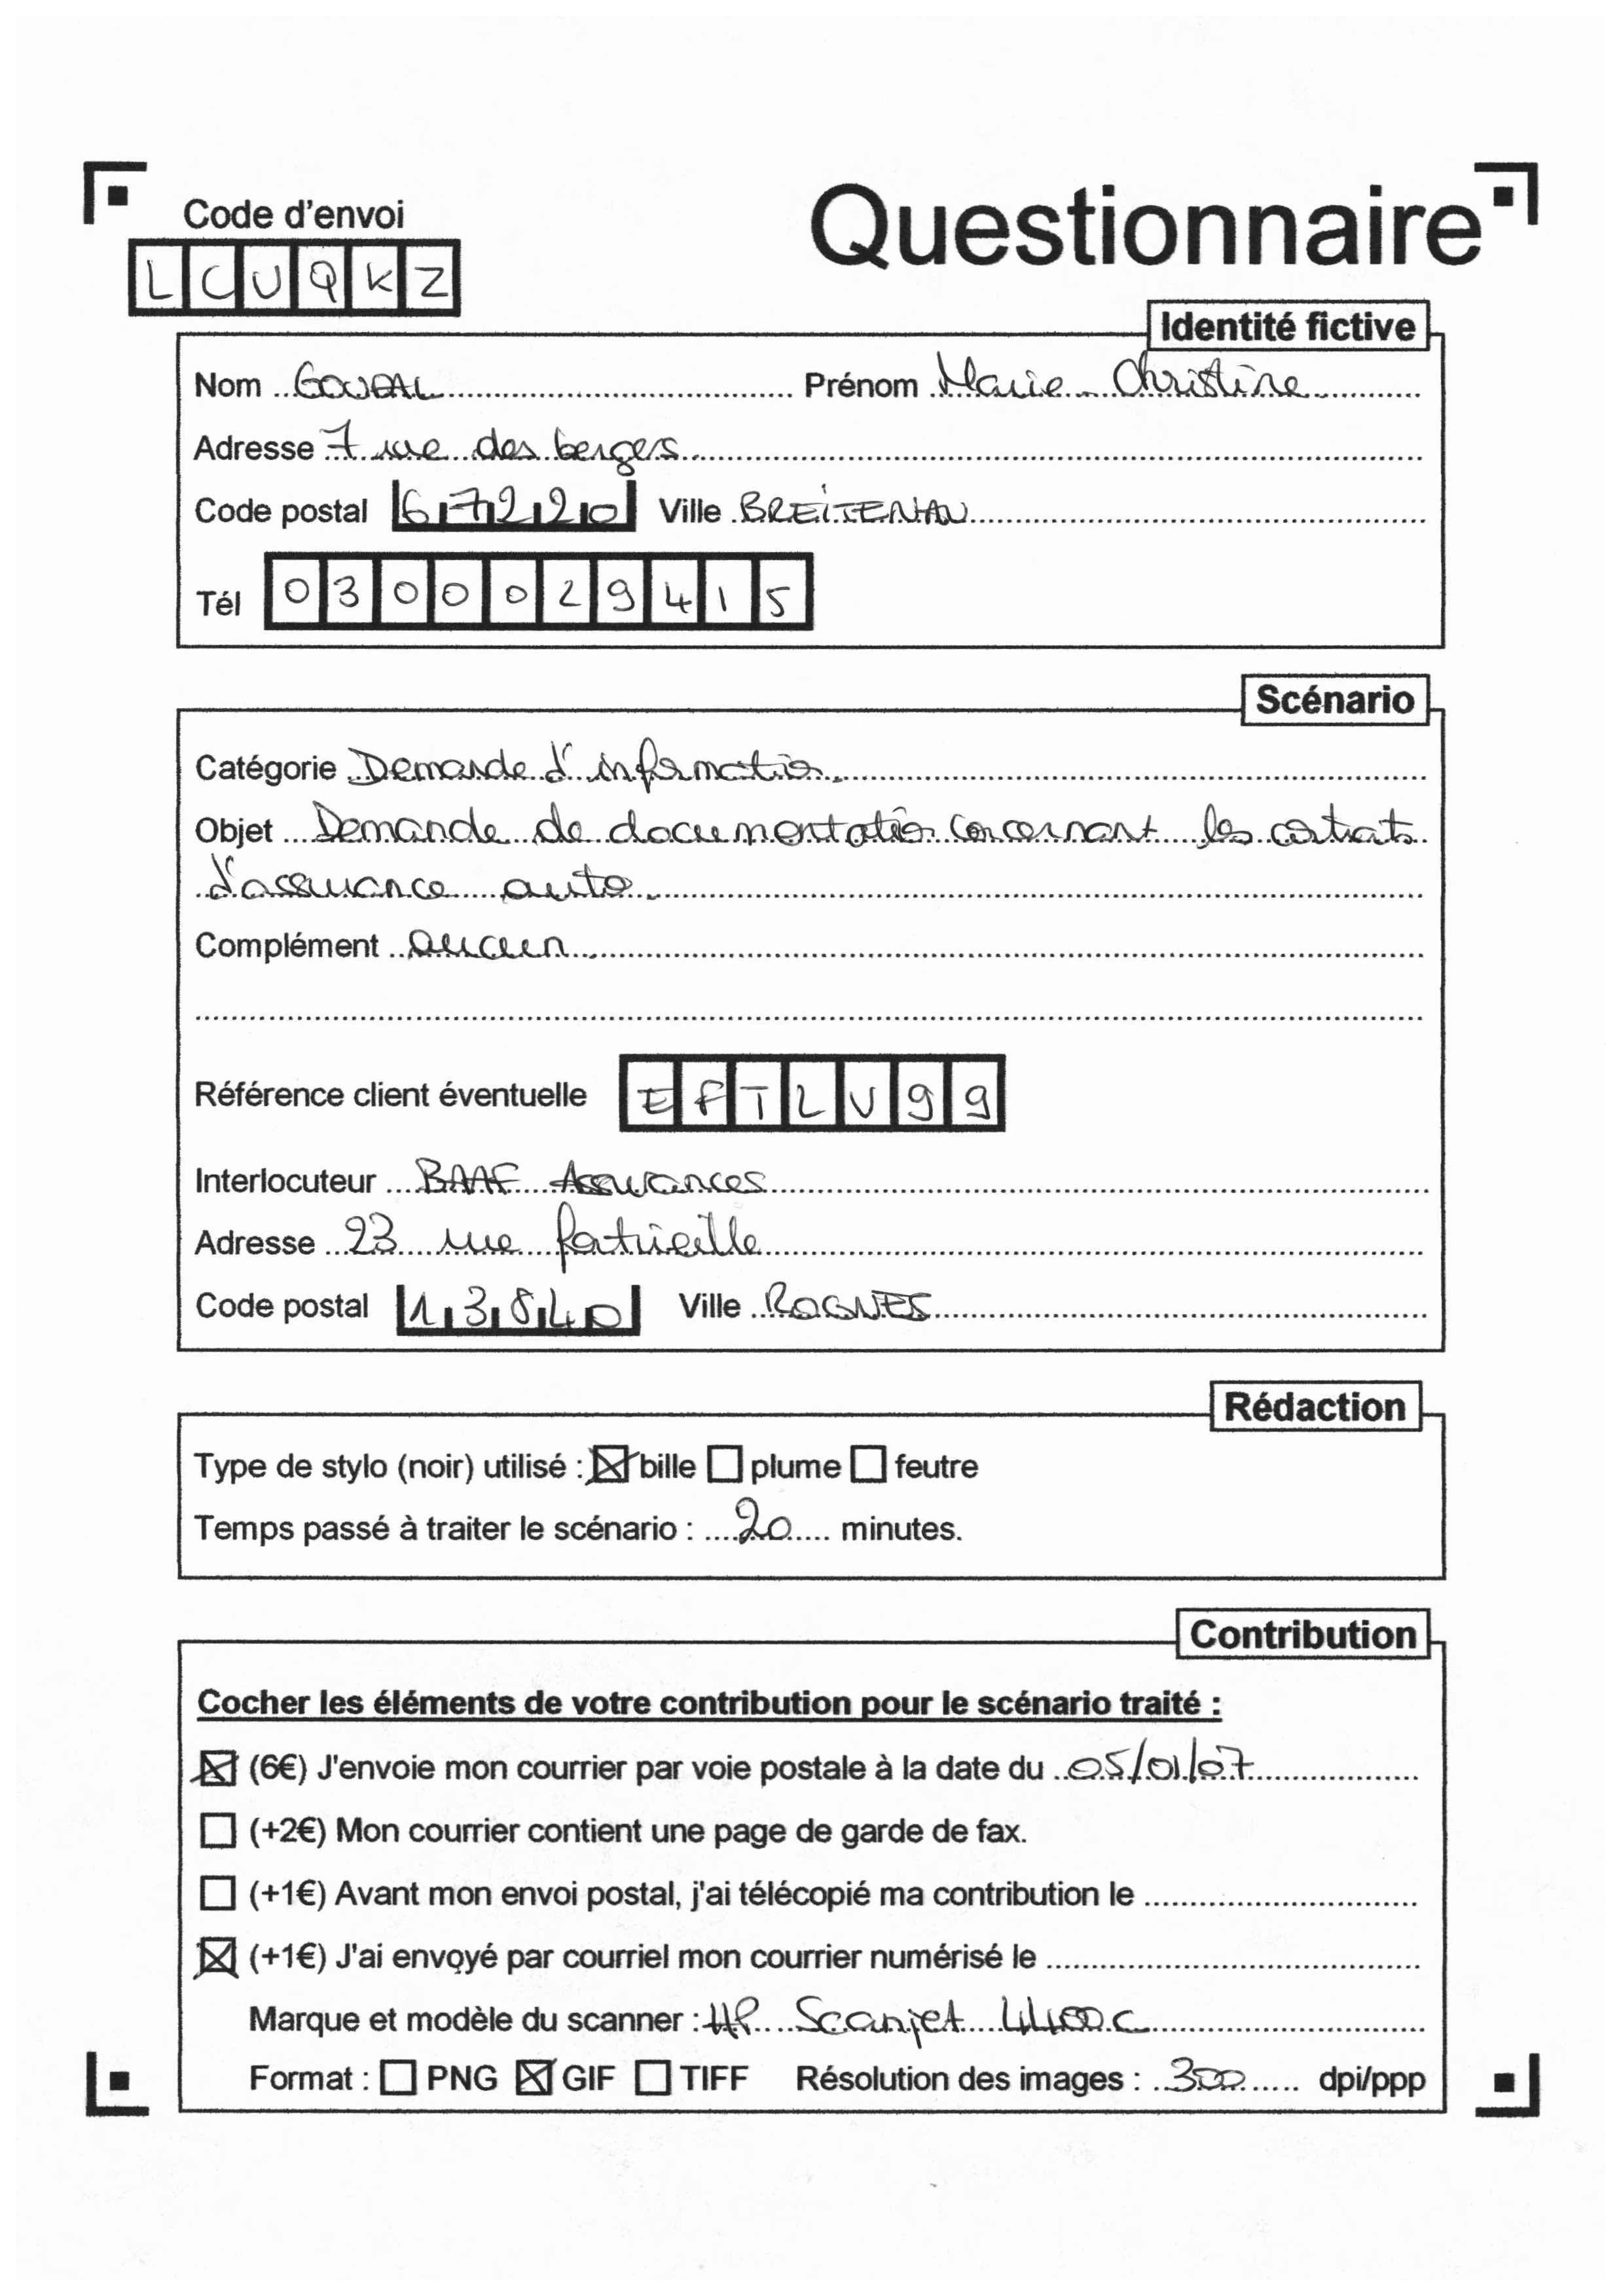 Code d'envoi
Questionnaire
LCUQKZ
Identité fictive
Nom GOUDAL Prénom Marie-Christine
Adresse 7 rue des bergers
Code postal 67220 Ville BREITENAU
Tél 0300029415
Scénario
Catégorie Demande d'information
Objet Demande de documentation concernant les contrats
d'assurance auto
Complément aucun
Référence client éventuelle EFTLV99
Interlocuteur BAAF Assurances
Adresse 23 rue
Code postal 13840 Ville ROGNES
Rédaction
Type de stylo (noir) utilisé : ☒ bille ☐ plume ☐ feutre
Temps passé à traiter le scénario : 20 minutes.
Contribution
Cocher les éléments de votre contribution pour le scénario traité :
☒ (6€) J'envoie mon courrier par voie postale à la date du 05/01/07
☐ (+2€) Mon courrier contient une page de garde de fax.
☐ (+1€) Avant mon envoi postal, j'ai télécopié ma contribution le
☒ (+1€) J'ai envoyé par courriel mon courrier numérisé le
Marque et modèle du scanner : HP Scanjet 4400c
Format : ☐ PNG ☒ GIF ☐ TIFF Résolution des images : 300 dpi/ppp